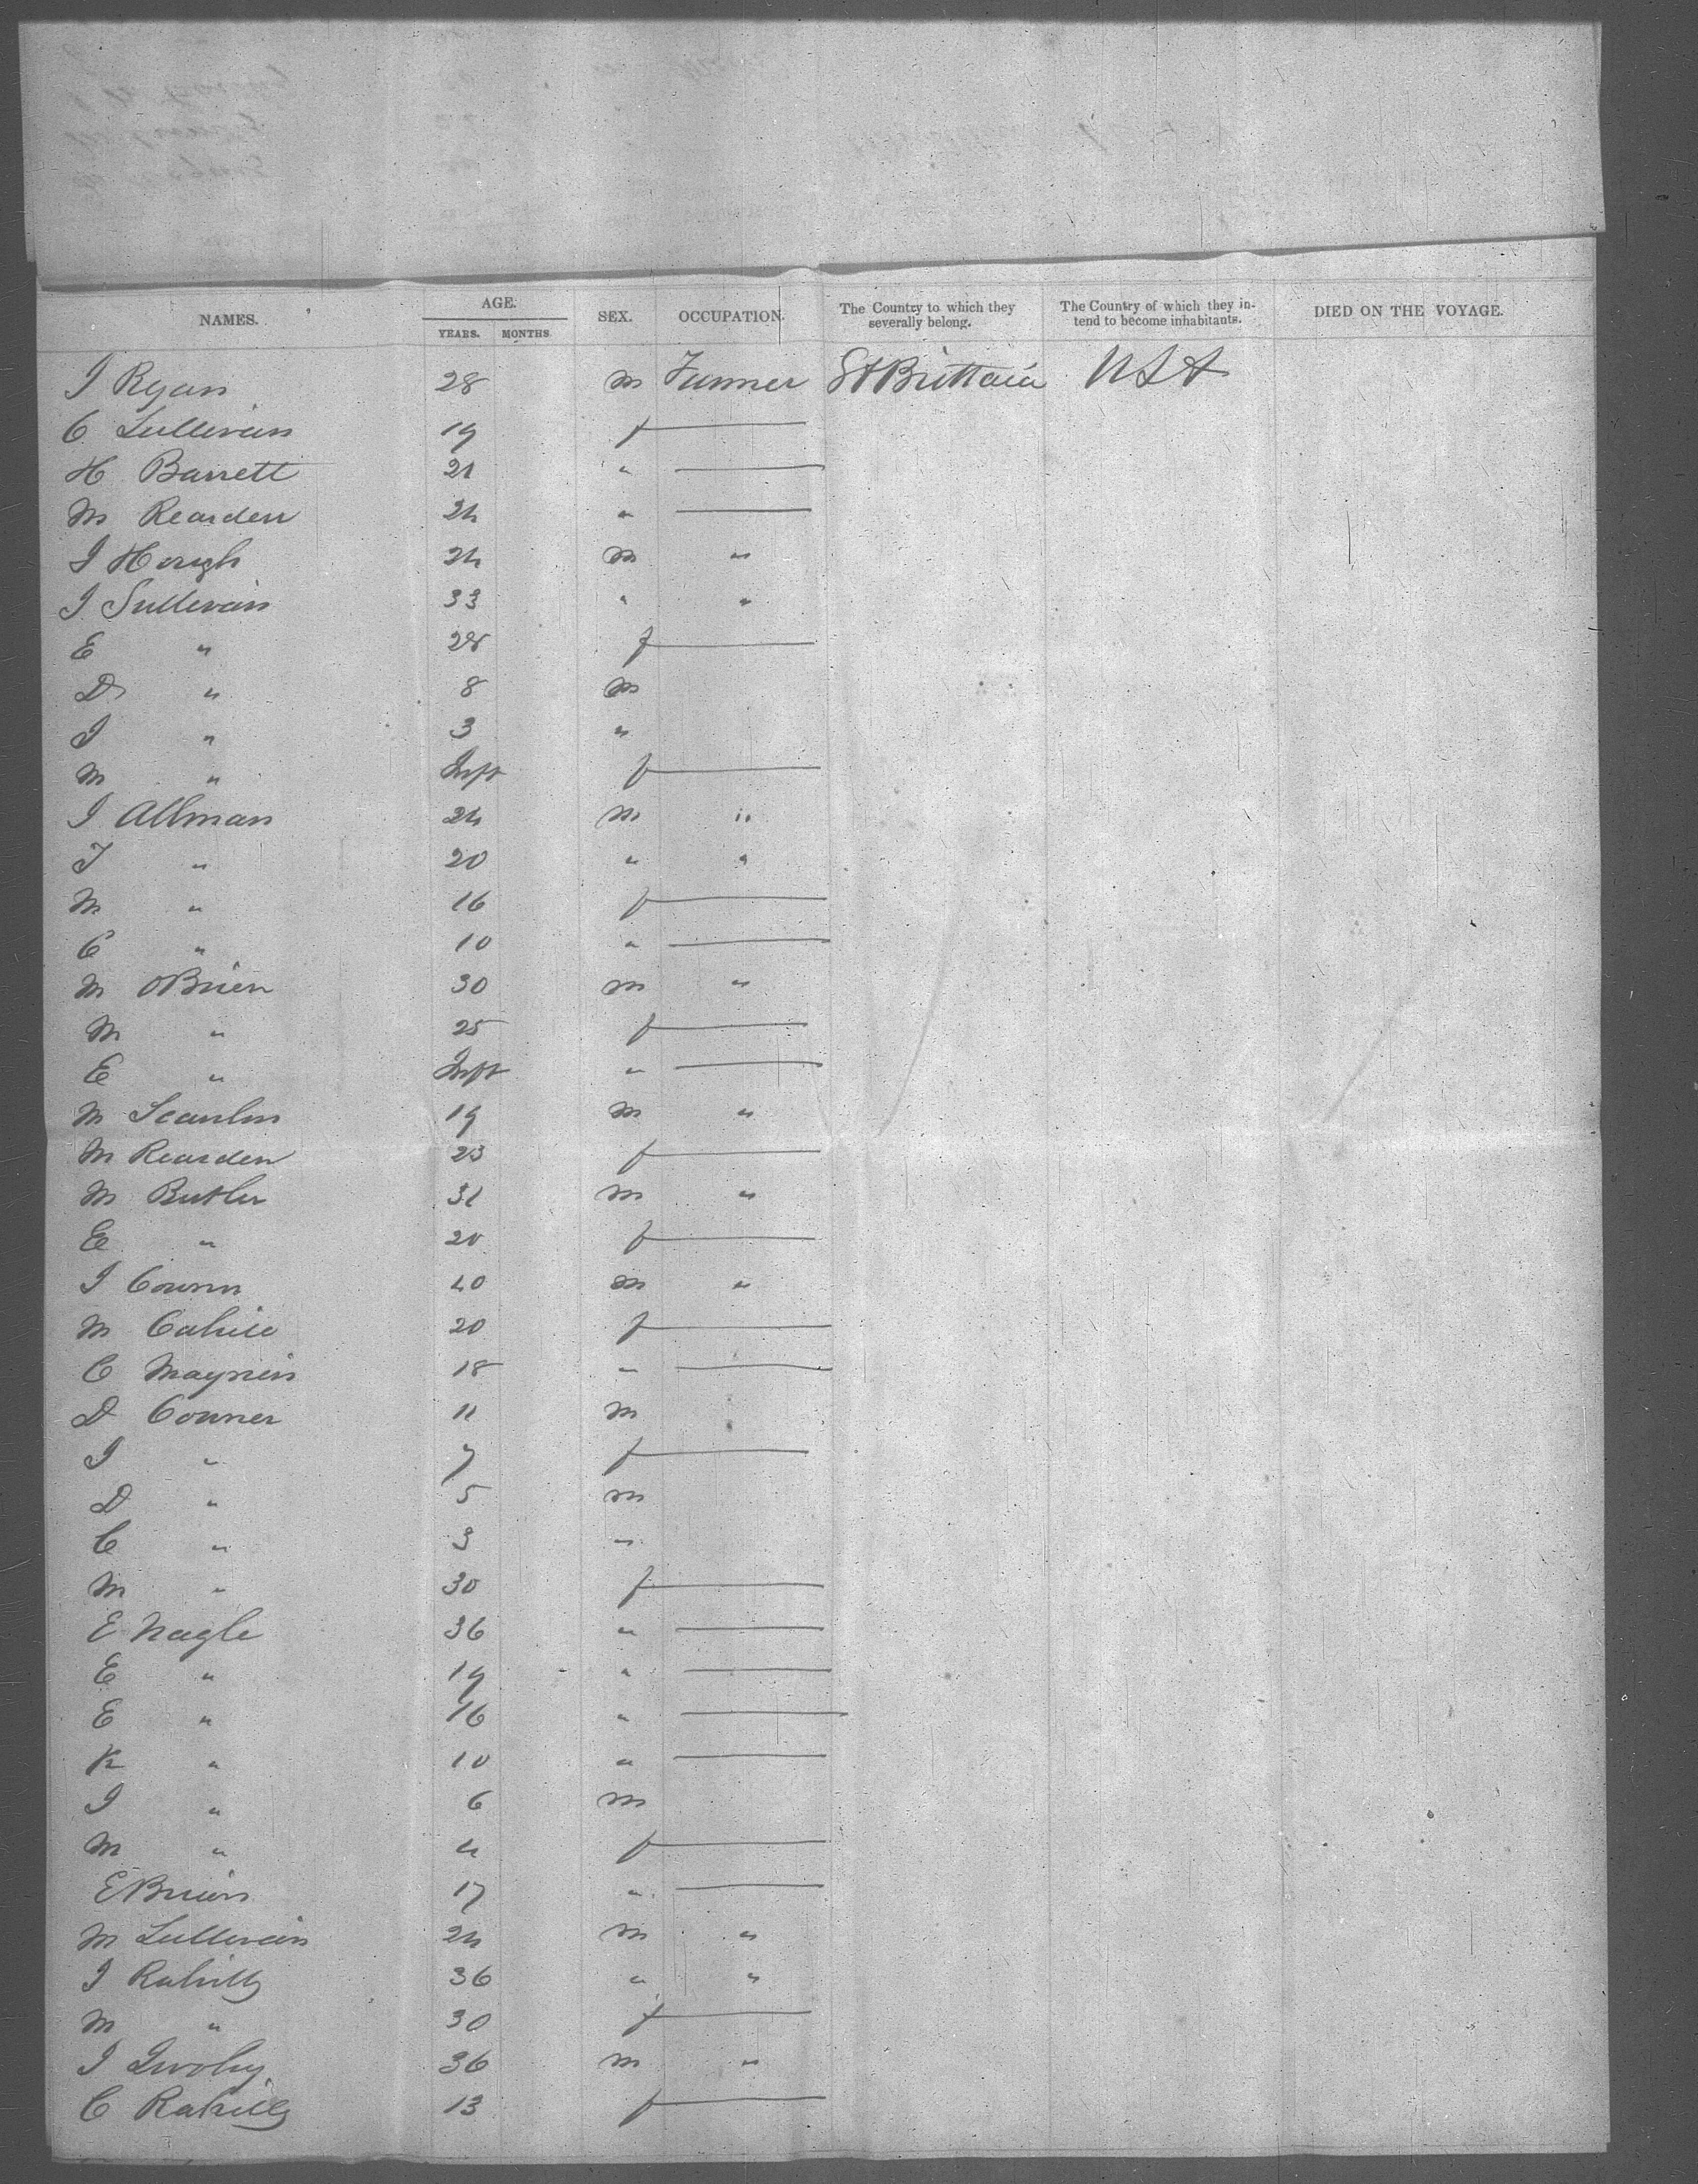 NAMES. AGE. YEARS. MONTHS. SEX. OCCUPATION. The Country to which they severally belong. The Country of which they intend to become inhabitants. DIED ON THE VOYAGE.
J Ryan 28 m Farmer Gt Brittain USA
C Sullivan 19 f
H Barrett 21 "
M Rearden 24 "
J Hough 24 m "
J Sullivan 33 " "
E " 28 f
D " 8 m
J " 3 "
M " Inft f
J Allman 24 m "
T " 20 " "
M " 16 f
C " 10 "
M OBrien 30 m "
M " 25 f
E " Inft "
M Scanlon 19 m "
M Rearden 23 f
M Butler 31 m "
E " 20 f
J 40 m "
M Cahill 20 f
C 18 "
D Conner 11 m
J " 7 f
D " 5 m
C " 3 "
M " 30 f
E Nagle 36 "
E " 19 "
E " 16 "
K " 10 "
J " 6 m
M " 4 f
E Brien 17 "
M Sullivan 24 m "
J Rahilly 36 " "
M " 30 f
J 36 m "
C Rahilly 13 f